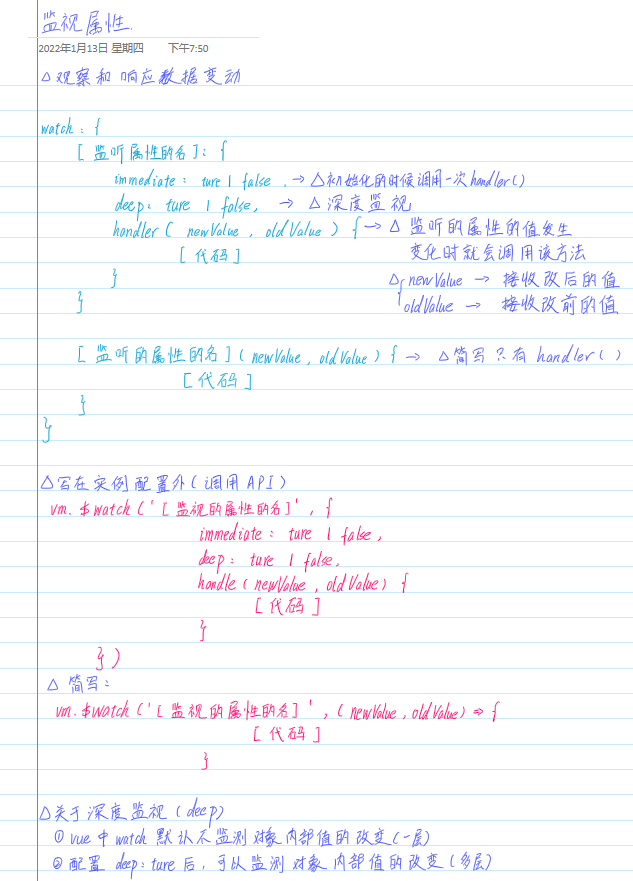 监视属性.
2022年1月13日 星期四 下午7:50
△观察和响应数据变动
watch : {
[ 监听属性的名 ] : {
immediate : ture | false , → △初始化的时候调用一次handler()
deep : ture | false, → △ 深度监视
handler ( newValue , oldValue ) { → △ 监听的属性的值发生
[ 代码 ] 变化时就会调用该方法
} △{ newValue → 接收改后的值
} oldValue → 接收改前的值
[ 监听的属性的名 ] ( newValue , oldValue ) { → △简写只有 handler ( )
[ 代码 ]
}
}
△写在实例配置外 ( 调用 API )
vm. $watch ( ' [ 监视的属性的名 ] ' , {
immediate : ture | false ,
deep : ture | false,
handle ( newValue , oldValue ) {
[ 代码 ]
}
} )
△ 简写 :
vm. $watch ( ' [ 监视的属性的名 ] ' , ( newValue , oldValue ) => {
[ 代码 ]
}
△关于深度监视 ( deep )
① vue 中 watch 默认不监测对象内部值的改变 (一层)
② 配置 deep : ture 后 , 可以监测对象内部值的改变 (多层)